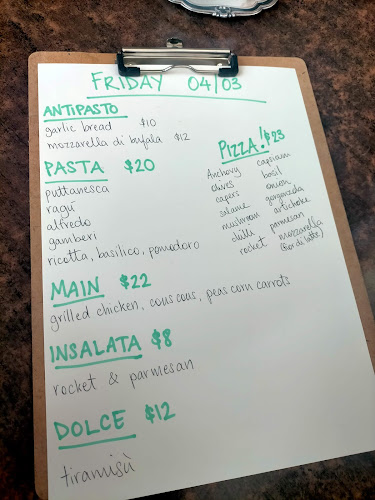 FRIDAY 04/03
ANTIPASTO
garlic bread $10
mozzarella di bufala $12
PASTA $20
puttanesca
ragú
alfredo
gamberi
ricotta, basilico, pomodoro
PIZZA! $23
Anchovy capsicum
olives basil
capers onion
salame gorgonzola
mushroom artichoke
chilli parmesan
rocket mozzarella
(fior di latte)
MAIN $22
grilled chicken, cous cous, peas corn carrots
INSALATA $8
rocket & parmesan
DOLCE $12
tiramisù